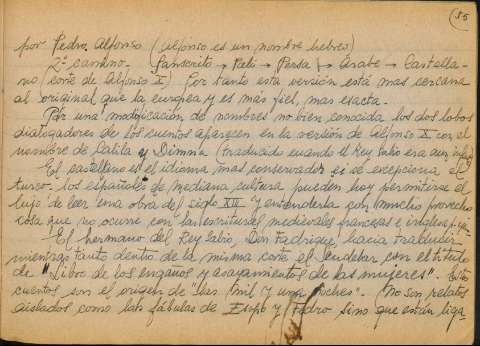 (55
por Pedro Alfonso (Alfonso es un nombre hebreo)
2º camino. Sanscrito → Pelvi → Persa → Arabe → Castella-
no (corte de Alfonso X). Por tanto esta versión está mas cercana
al original que la europea y es más fiel, mas exacta.
Por una modificación de nombres no bien conocida los dos lobos
dialogadores de los cuentos aparecen en la versión de Alfonso X con el
nombre de Calila y Dimna (traducido cuando el Rey Sabio era aun infante)
El castellano es el idioma mas conservador si se excepciona el
turco. los españoles de mediana cultura pueden hoy permitirse el
lujo de leer una obra del siglo XIII y entenderla con mucho provecho
cosa que no ocurre con las escrituras medievales francesas e inglesas p. ej.
El hermano del Rey Sabio, Don Fadrique, hacia traducir
mientras tanto dentro de la misma corte el Sendebar con el titulo
de "Libro de los engannos y asayamientos de las mujeres". Estos
cuentos son el origen de "Las mil y una noches". (No son relatos
aislados como las fábulas de Esopo y Fedro sino que están liga